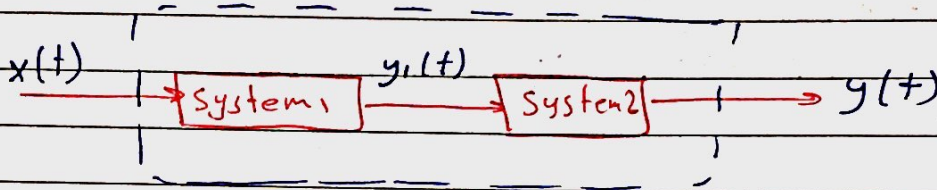 x(t)
System1
y1(t)
System2
y(t)